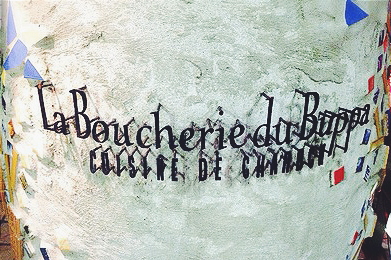 La Boucherie du Buppa
CUISINE DE CHARBON